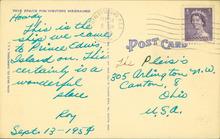 THIS SPACE FOR WRITING MESSAGES
Howdy
This is the
ship we came
to Prince Edward
Island on. This
certainly is a
wonderful
place
Roy
Sept 13 - 1954
POST CARD
The Pleis's
305 Arlington N.W.
Canton, 8
Ohio
U.S.A.